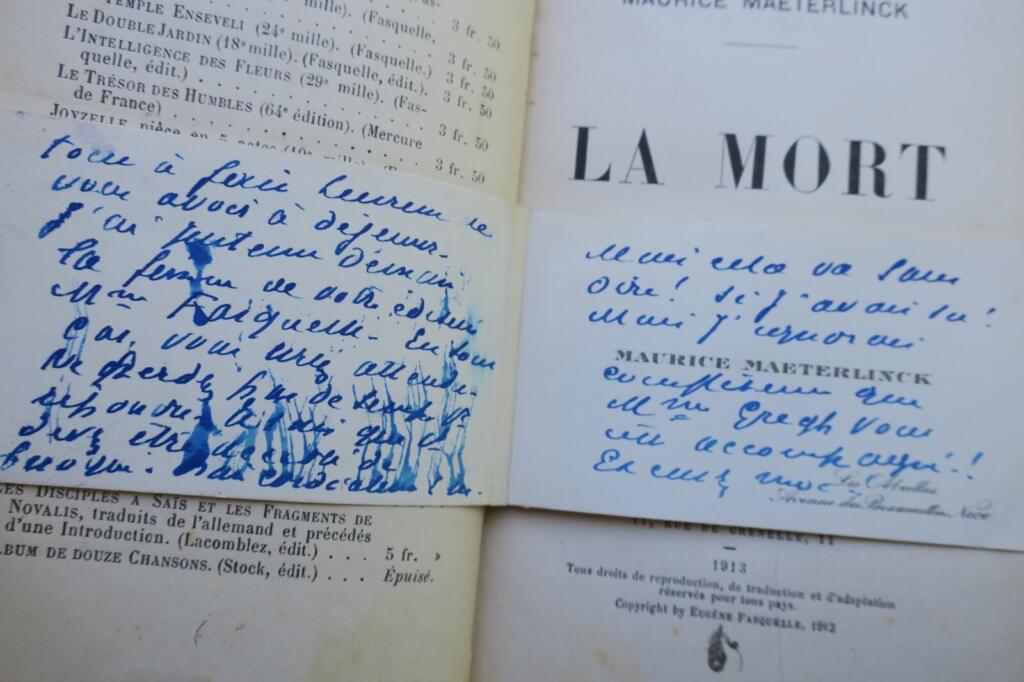 TEMPLE ENSEVELI (24e mille). (Fasquelle,
3 fr. 50
LE DOUBLE JARDIN (18e mille). (Fasquelle.)
3 fr. 50
L'INTELLIGENCE DES FLEURS (29e mille). (Fas-
quelle, édit.) . . . 3 fr. 50
LE TRÉSOR DES HUMBLES (64e édition). (Mercure
de France) . . . 3 fr. 50
JOYZELLE, pièce en 5 actes
3 fr. 50
tout à fait heureux de
vous avoir à déjeuner.
J'ai justement demain
la femme de votre éditeur
Mme Fasquelle. En tout
cas, vous serez attendu.
Ne perdez pas de temps
LES DISCIPLES A SAÏS ET LES FRAGMENTS DE
NOVALIS, traduits de l'allemand et précédés
d'une Introduction. (Lacomblez, édit.) . . . 5 fr. »
ALBUM DE DOUZE CHANSONS. (Stock, édit.) . . . Épuisé.
MAURICE MAETERLINCK
LA MORT
Mais cela va sans
dire! Si j'avais su!
Mais j'ignorais
MAURICE MAETERLINCK
complètement que
Mme Gregh vous
eût accompagné!
Excusez moi
Les Abeilles
Avenue des Baumettes Nice
11, RUE DE GRENELLE, 11
1913
Tous droits de reproduction, de traduction et d'adaptation
réservés pour tous pays.
Copyright by EUGÈNE FASQUELLE, 1913